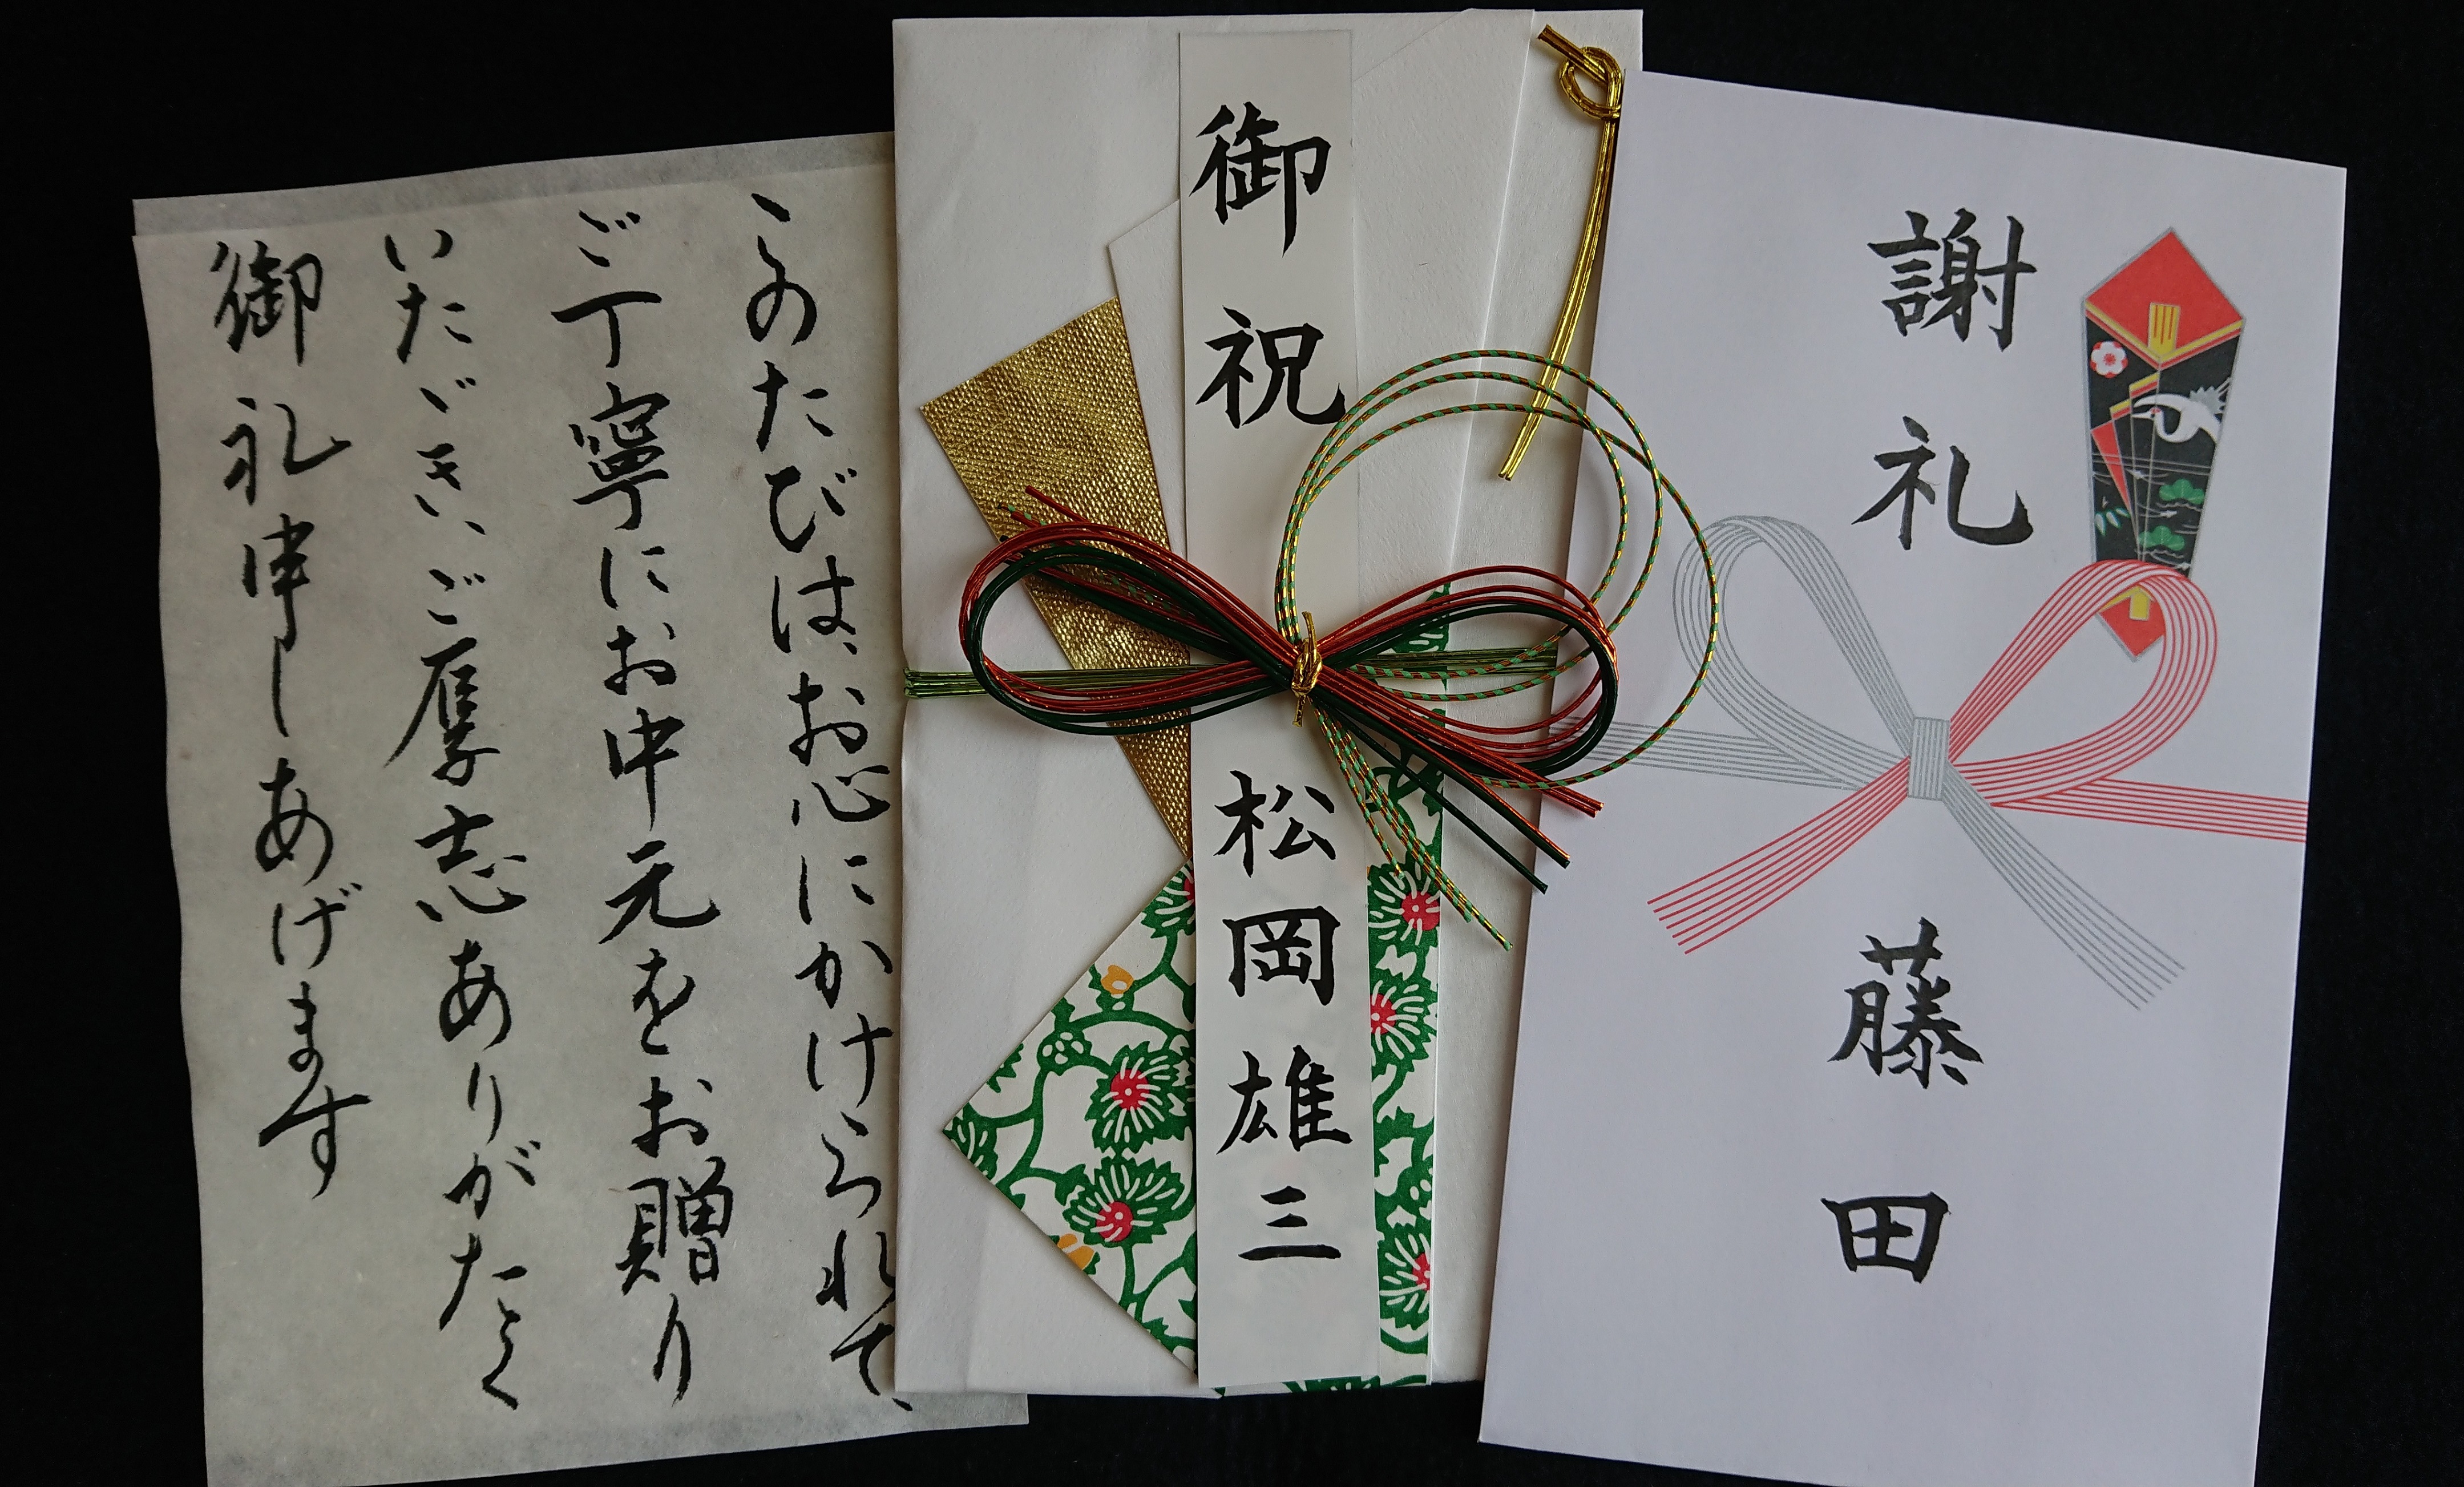 謝礼
藤田
御祝
松岡雄三
このたびは、お心にかけられて、
ご丁寧にお中元をお贈り
いただき、ご厚志ありがたく
御礼申しあげます